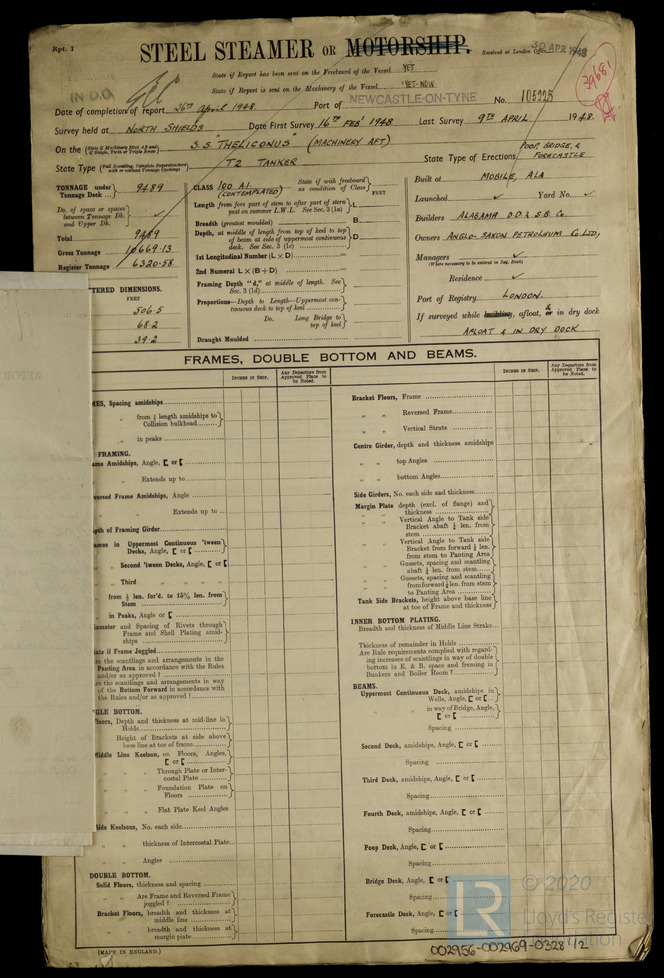 Rpt. 1
STEEL STEAMER OR MOTORSHIP.
Received at London Office 30 APR 1948
State if Report has been sent on the Freeboard of the Vessel YES
State if Report is sent on the Machinery of the Vessel YES-NOW.
IN D.O.
Date of completion of report 26th April 1948. Port of NEWCASTLE-ON-TYNE No. 105225
Survey held at NORTH SHIELDS Date First Survey 16TH FEBY 1948 Last Survey 9TH APRIL 1948.
On the (State if Machinery fitted Aft and if Single, Twin or Triple Screw) S.S. "THELICONUS" (MACHINERY AFT)
State Type (Full Scantling, Complete Superstructure with or without Tonnage Openings) T2 TANKER
State Type of Erections POOP, BRIDGE, & FORECASTLE
TONNAGE under Tonnage Deck 9489
Do. of space or spaces between Tonnage Dk. and Upper Dk. ✓
Total 9489
Gross Tonnage 10669.13
Register Tonnage 6320.58
TTERED DIMENSIONS.
FEET
506.5
68.2
39.2
CLASS 100 A1. (CONTEMPLATED)
State if with freeboard as condition of Class
FEET
Length from fore part of stem to after part of stern post on summer L.W.L. See Sec. 3 (1a) L
Breadth (greatest moulded) B
Depth, at middle of length from top of keel to top of beam at side of uppermost continuous deck. See Sec. 3 (1c) D
1st Longitudinal Number (L × D) =
2nd Numeral L × (B + D) =
Framing Depth "d," at middle of length. See Sec. 3 (1d)
Proportions—Depth to Length—Uppermost continuous deck to top of keel
Do. Long Bridge to top of keel
Draught Moulded
Built at MOBILE, ALA
Launched ✓ Yard No. ✓
Builders ALABAMA D.D. & S.B. Co.
Owners ANGLO-SAXON PETROLEUM Co. LTD,
Managers ✓
(Where necessary to be entered in Reg. Book)
Residence ✓
Port of Registry LONDON.
If surveyed while building, afloat, & or in dry dock
AFLOAT & IN DRY DOCK
FRAMES, DOUBLE BOTTOM AND BEAMS.
INCHES IN SHIP.
Any Departure from Approved Plans to be Noted.
INCHES IN SHIP.
Any Departure from Approved Plans to be Noted.
MES, Spacing amidships
" " from ½ length amidships to Collision bulkhead
" " in peaks
FRAMING.
ame Amidships, Angle, [ or [
" " Extends up to
versed Frame Amidships, Angle
" " Extends up to
pth of Framing Girder
ames in Uppermost Continuous 'tween Decks, Angle, [ or [
" Second 'tween Decks, Angle, [ or [
" Third " " " "
" from ½ len. for'd. to 15% len. from Stem
" in Peaks, Angle or [
ameter and Spacing of Rivets through Frame and Shell Plating amidships
ate if Frame Joggled
re the scantlings and arrangements in the Panting Area in accordance with the Rules and/or as approved ?
re the scantlings and arrangements in way of the Bottom Forward in accordance with the Rules and/or as approved ?
GLE BOTTOM.
loors, Depth and thickness at mid-line in Holds
Height of Brackets at side above base line at toe of frame
iddle Line Keelson, on Floors, Angles, [ or [
" " Through Plate or Intercostal Plate
" " Foundation Plate on Floors
" " Flat Plate Keel Angles
ide Keelsons, No. each side
" " thickness of Intercostal Plate
" " Angles
DOUBLE BOTTOM.
Solid Floors, thickness and spacing
" " Are Frame and Reversed Frame joggled ?
Bracket Floors, breadth and thickness at middle line
" " breadth and thickness at margin plate
Bracket Floors, Frame
" " Reversed Frame
" " Vertical Struts
Centre Girder, depth and thickness amidships
" " top Angles
" " bottom Angles
Side Girders, No. each side and thickness
Margin Plate depth (excl. of flange) and thickness
" " Vertical Angle to Tank side Bracket abaft ¼ len. from stem
" " Vertical Angle to Tank side Bracket from forward ¼ len. from stem to Panting Area
" " Gussets, spacing and scantling abaft ¼ len. from stem
" " Gussets, spacing and scantling from forward ¼ len. from stem to Panting Area
Tank Side Brackets, height above base line at toe of Frame and thickness
INNER BOTTOM PLATING.
Breadth and thickness of Middle Line Strake
Thickness of remainder in Holds
Are Rule requirements complied with regarding increases of scantlings in way of double bottom in E. & B. space and framing in Bunkers and Boiler Room ?
BEAMS.
Uppermost Continuous Deck, amidships in Wells, Angle, [ or [
" " in way of Bridge, Angle, [ or [
" " Spacing
Second Deck, amidships, Angle, [ or [
" " Spacing
Third Deck, amidships, Angle, [ or [
" " Spacing
Fourth Deck, amidships, Angle, [ or [
" " Spacing
Poop Deck, Angle, [ or [
" " Spacing
Bridge Deck, Angle, [ or [
" " Spacing
Forecastle Deck, Angle, [ or [
" " Spacing
(MADE IN ENGLAND.)
LR © 2020
Lloyd's Register
Foundation
002956-002969-0328 1/2